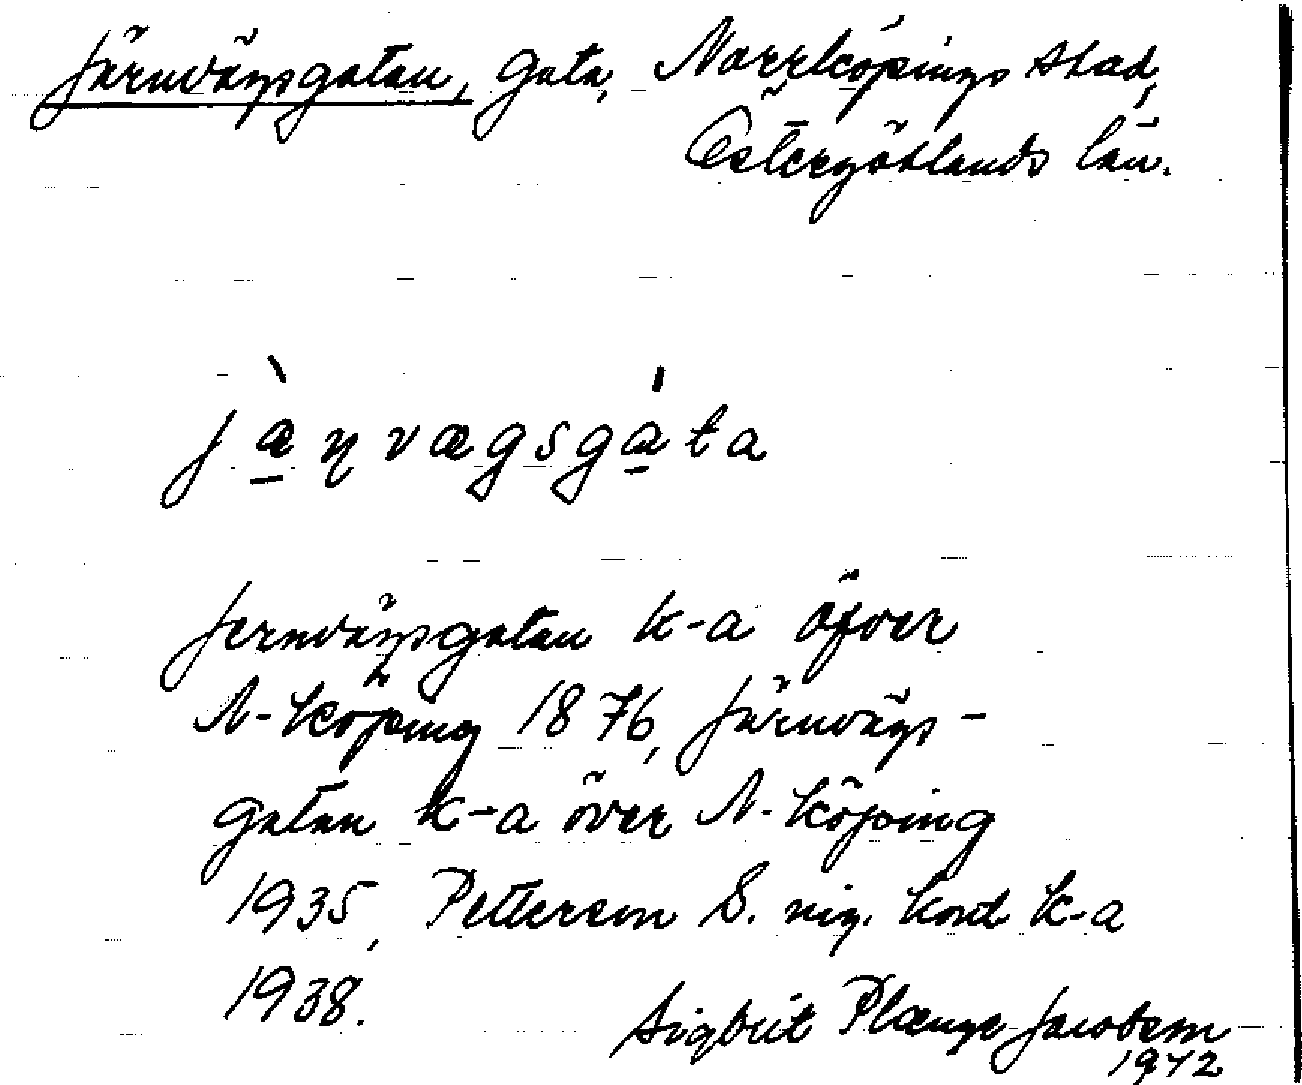 Järnvägsgatan, gata, Norrköpings stad,
Östergötlands län.
jæ̀ṇvægsgáta
Jernvägsgatan k-a öfver
N-köping 1876, Järnvägs-
gatan k-a över N-köping
1935, Petterson S. nig. kond k-a
1938.
Sigbrit Plænge Jacobson
1972